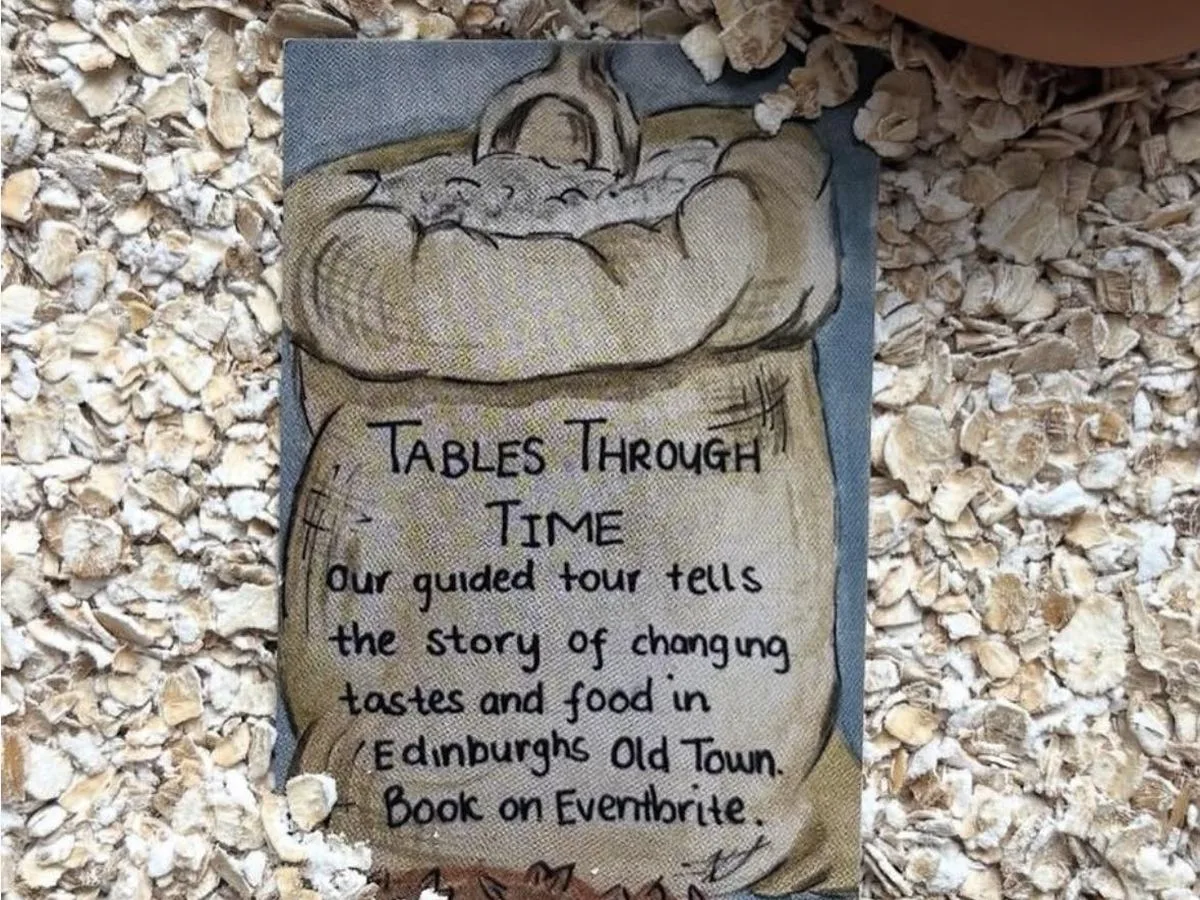 TABLES THROUGH
TIME
Our guided tour tells
the story of changing
tastes and food in
Edinburghs Old Town.
Book on Eventbrite.